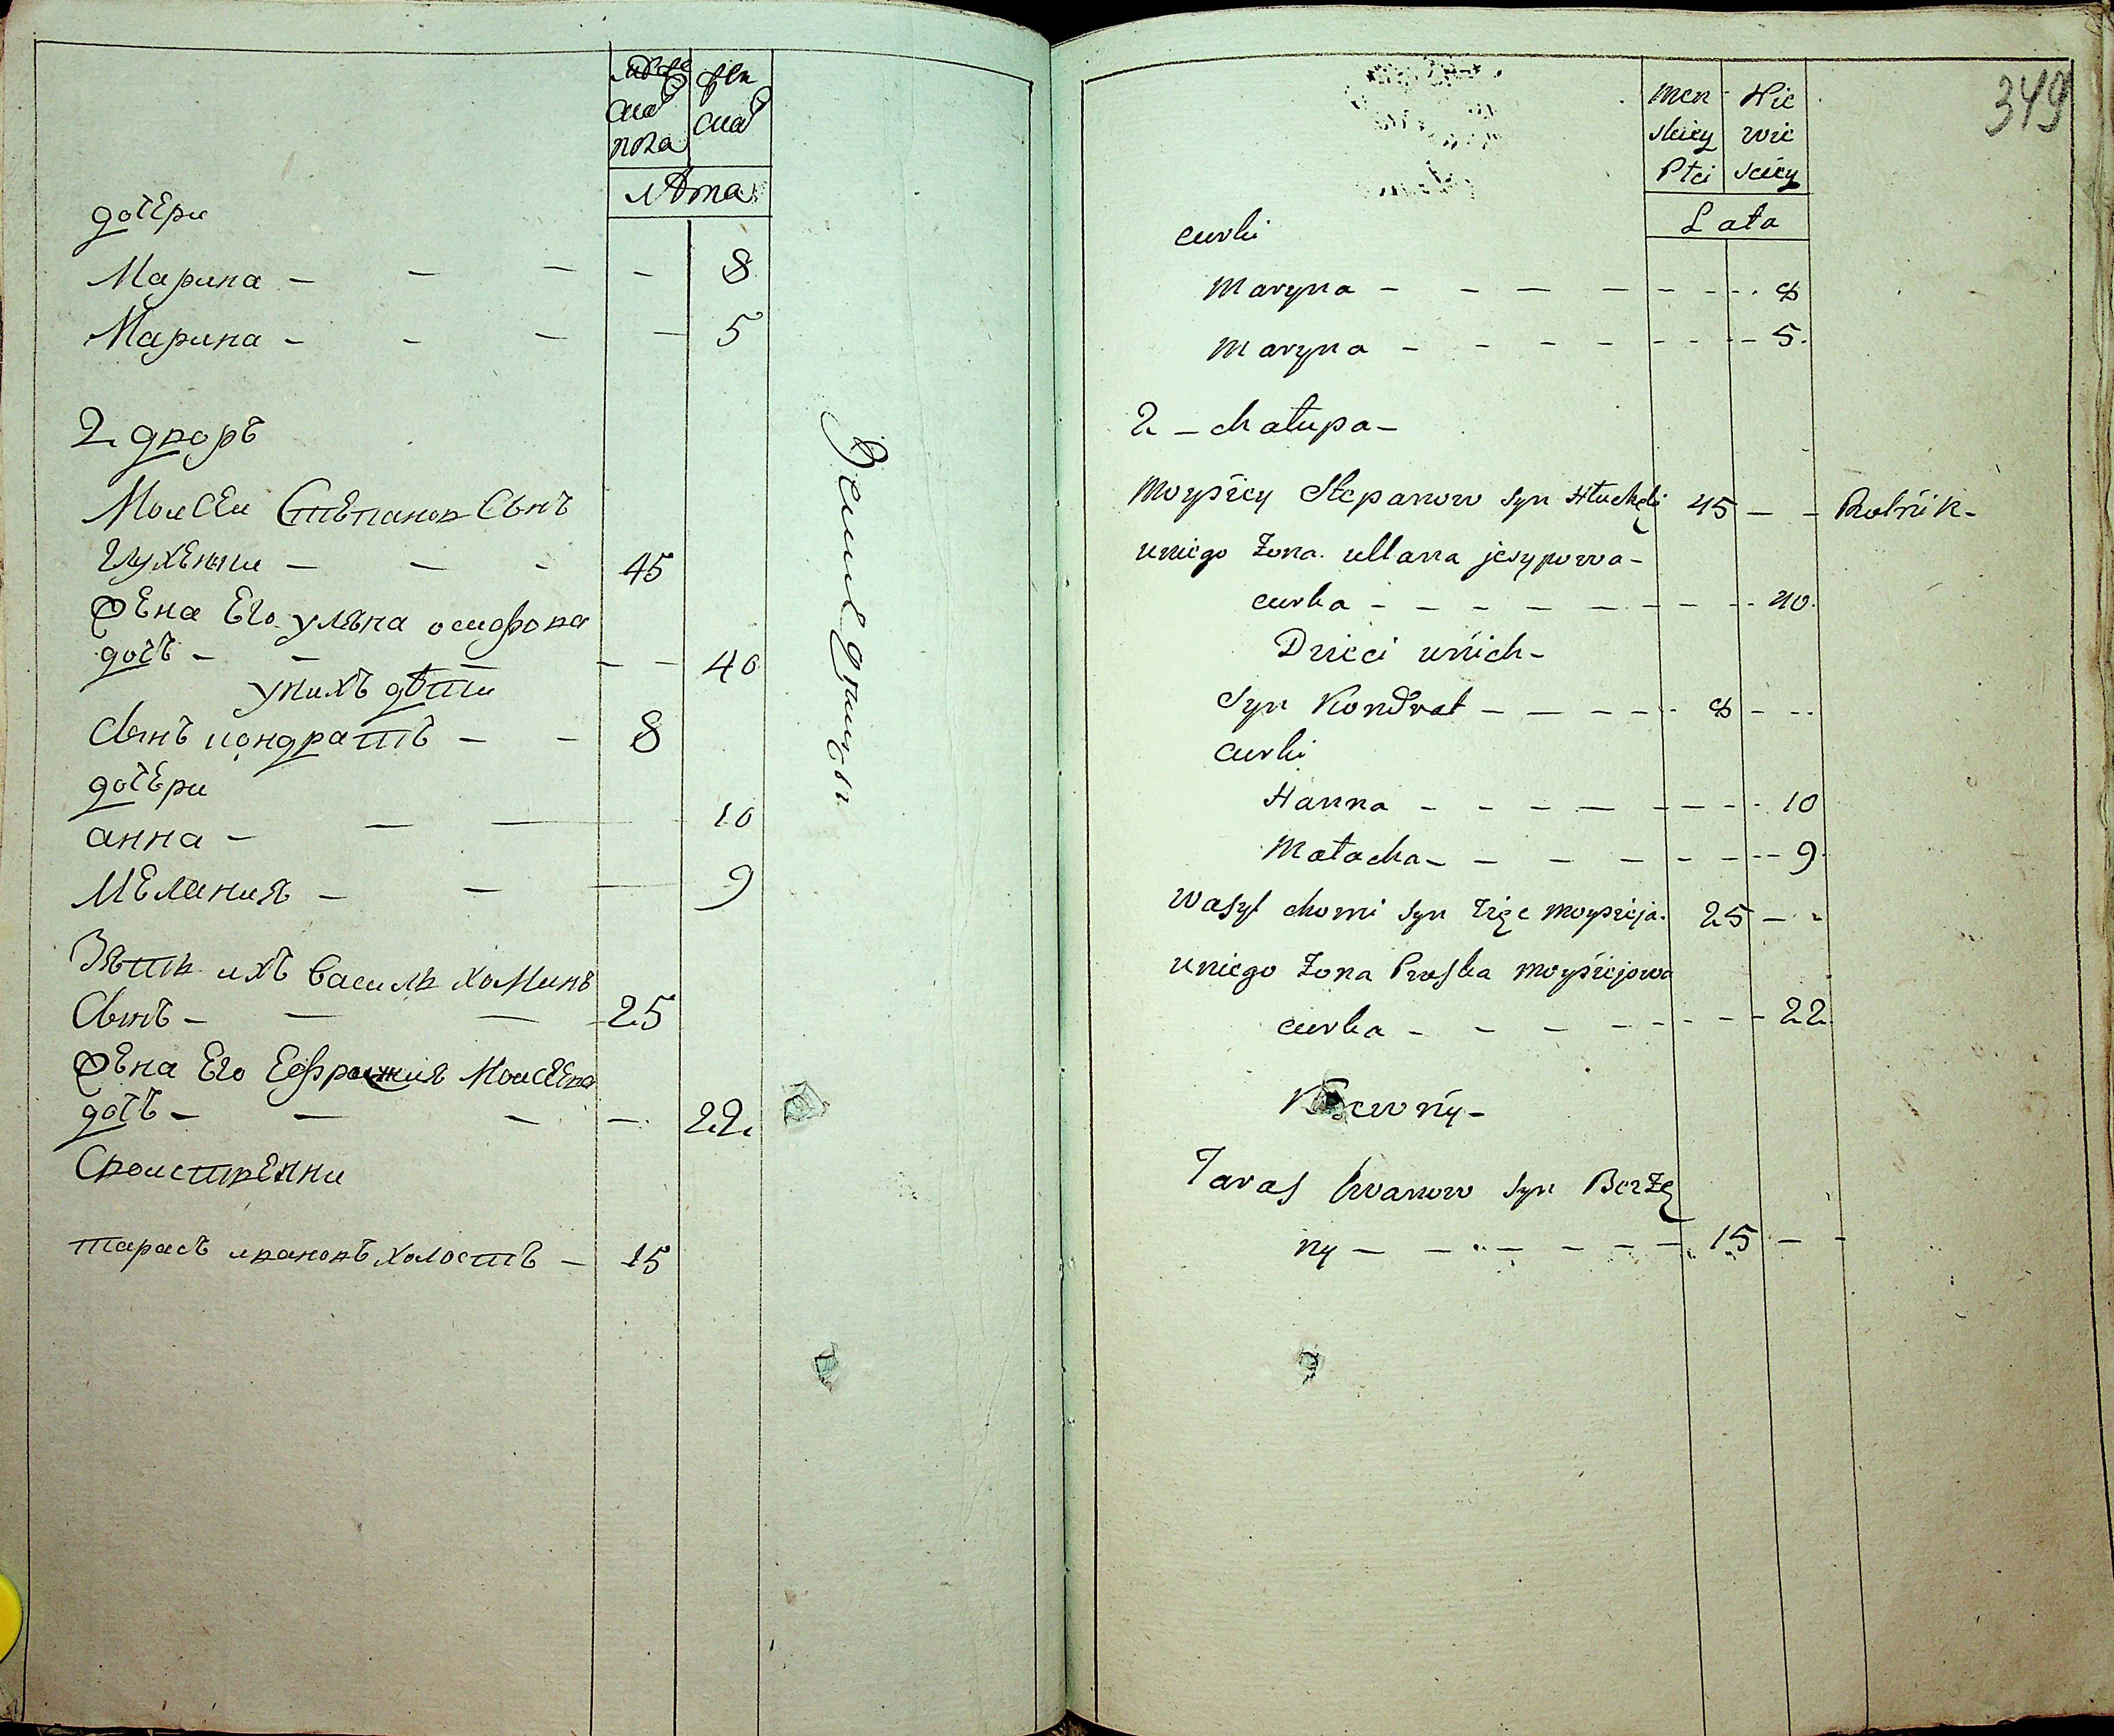 мужеска пола
женска
лѣта
дочери
Марина - - - - 8
Марина - - - - 5
2 дворъ
Моисеи Степанов Сынъ
Глухенки - - - 45
Жена Его уляна осифова
дочъ - - - - - 40
у нихъ дѣти
Сынъ кондратъ - - 8
дочери
анна - - - 10
Мелания - - - 9
Зять ихъ василь хоминъ
Сынъ - - - 25
Жена Его Ефросиния Моисеева
дочъ - - - - 22
Своистренни
тарасъ ивановъ холостъ - 15
Земледелцы
349
Men skiey Płci
Nie wie sciey
Lata
curki
Maryna - - - - - - - 8
Maryna - - - - - - - 5
2 - chałupa -
Moysiey Stepanow syn 45 - - Rolnik -
uniego Żona ullana jesypowa -
curka - - - - - - - 40
Dzieci unich -
Syn Kondrat - - - - - 8 - -
curki
Hanna - - - - - - - 10
Małacha - - - - - - - 9
Wasyl chomi syn Zięc moysieja 25 - -
uniego Żona Pruska moysiejowa
curka - - - - - - - 22
Taras Iwanow syn Berżę
ny - - - - - - 15 - -